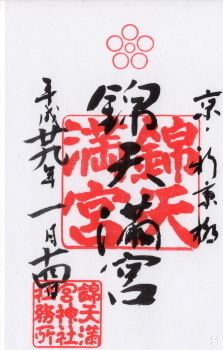 京・新京極
錦天満宮
平成廿九年一月十四日
錦天
満宮
錦天満
宮神社
社務所